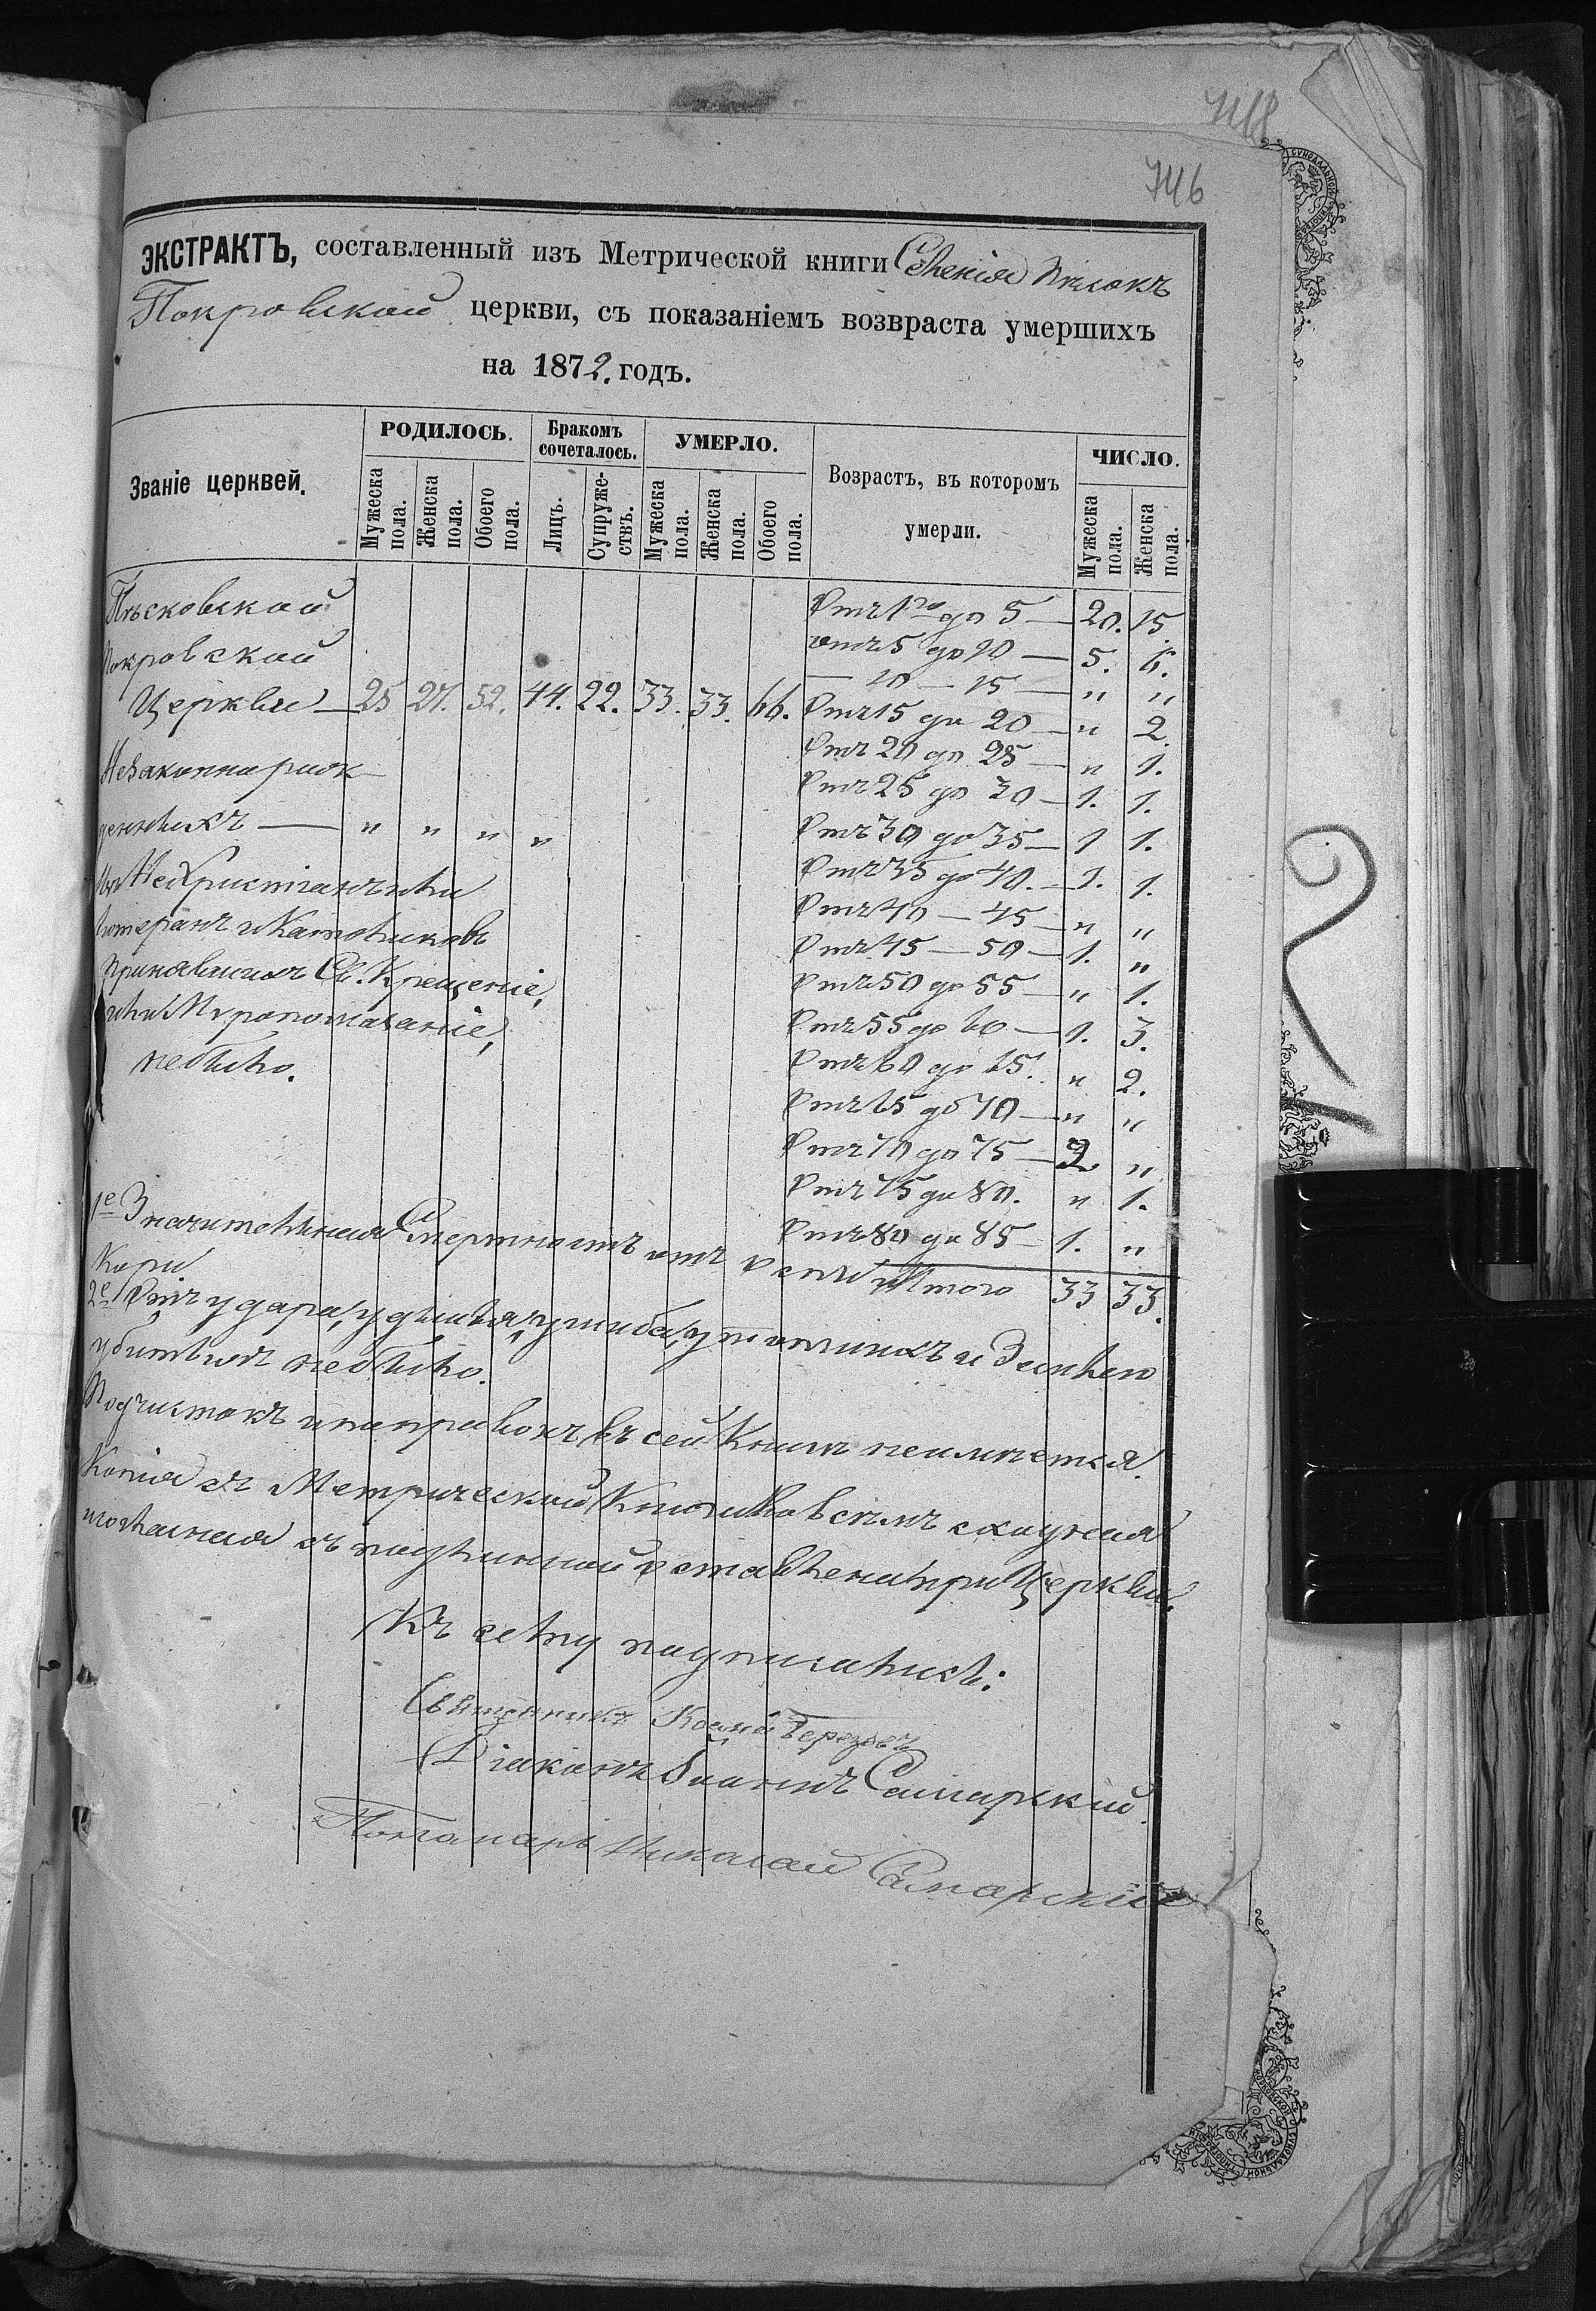 748
746
ЭКСТРАКТЪ, составленный изъ Метрической книги Селенія Пѣсокъ
Покровской церкви, съ показаніемъ возвраста умершихъ
на 1872. годъ.
Званіе церквей.
РОДИЛОСЬ.
Бракомъ сочеталось.
УМЕРЛО.
Возрастъ, въ которомъ умерли.
ЧИСЛО.
Мужеска пола.
Женска пола.
Обоего пола.
Лицъ.
Супружествъ.
Мужеска пола.
Женска пола.
Обоего пола.
Мужеска пола.
Женска пола.
Пѣсковской
Покровской
Церкви — 25 27. 52. 44. 22. 33. 33. 66.
Незаконнорож
денныхъ — " " " "
Нехристіанъ или
Лютеранъ и Католиковъ
принявшихъ Св. Крещеніе,
или Мѵропомазаніе,
небыло.
Отъ 1го до 5 — 20. 15.
отъ 5 до 10 — 5. 6.
— 10 — 15 — " "
Отъ 15 до 20 — " 2.
Отъ 20 до 25 — " 1.
Отъ 25 до 30 — 1. 1.
Отъ 30 до 35 — 1 1.
Отъ 35 до 40. — 1. 1.
Отъ 40 — 45 — " "
Отъ 45 — 50 — 1. "
Отъ 50 до 55 — " 1.
Отъ 55 до 60 — 1. 3.
Отъ 60 до 65. " 2.
Отъ 65 до 70 — " "
Отъ 70 до 75 — 2 "
Отъ 75 до 80. " 1.
Отъ 80 до 85 — 1. "
Итого 33 33.
1е Значительная Смертность отъ оспы и
Кори
2е Отъ удара, удушья, ушиба, утопшихъ и Землею
убитыхъ небыло.
Подчистокъ и поправокъ въ сей Книгѣ неимѣется.
Копія съ Метрической Книги во всѣмъ сходная
съ подлинной оставлена при Церкви.
Къ сему подписались:
Священникъ Косма Березовъ
Діаконъ Іоаннъ Самарскій
Пономарь Николай Самарскій